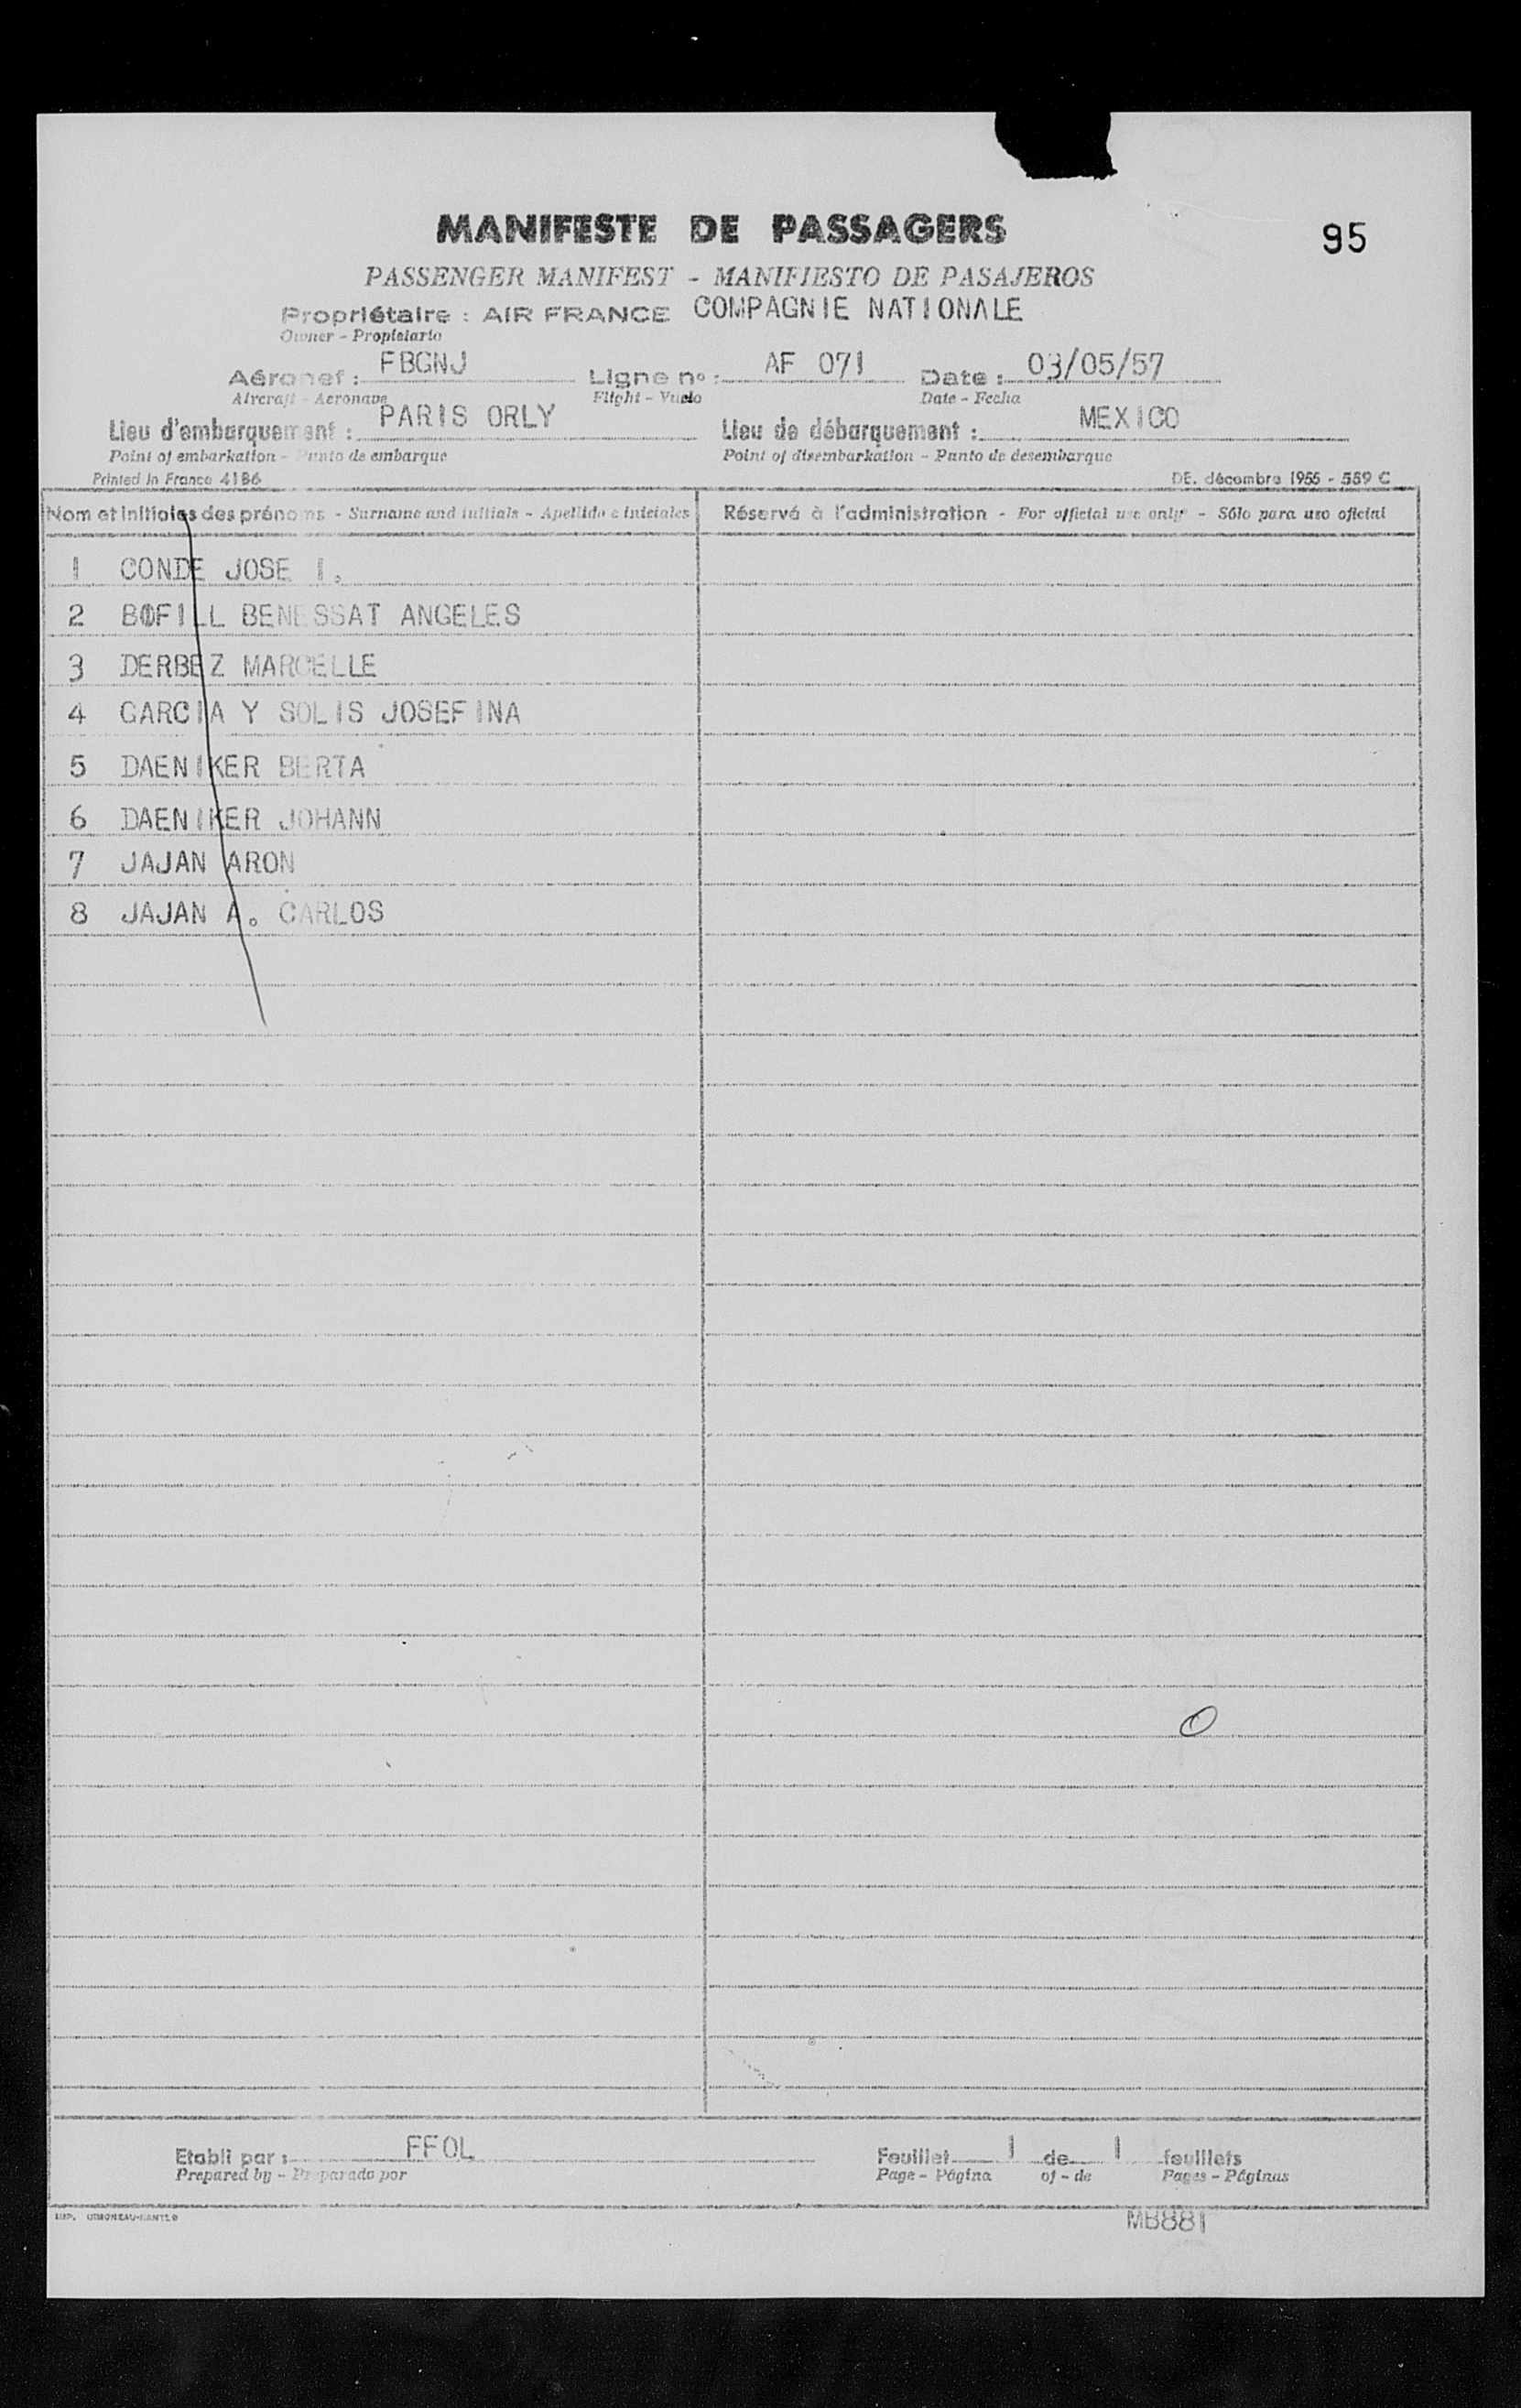 MANIFESTE DE PASSAGERS
95
PASSENGER MANIFEST - MANIFIESTO DE PASAJEROS
Propriétaire : AIR FRANCE COMPAGNIE NATIONALE
Owner - Propietario
Aéronef : FBGNJ Ligne nº : AF 071 Date : 03/05/57
Aircraft - Aeronave Flight - Vuelo Date - Fecha
Lieu d'embarquement : PARIS ORLY Lieu de débarquement : MEXICO
Point of embarkation - Punto de embarque Point of disembarkation - Punto de desembarque
Printed in France 4186 DE. décembre 1955 - 559 C
Nom et initiales des prénoms - Surname and initials - Apellido e iniciales Réservé à l'administration - For official use only - Sólo para uso oficial
1 CONDE JOSE I.
2 BOFILL BENESSAT ANGELES
3 DERBEZ MARCELLE
4 GARCIA Y SOLIS JOSEFINA
5 DAENIKER BERTA
6 DAENIKER JOHANN
7 JAJAN ARON
8 JAJAN A. CARLOS
Etabli par : FFOL Feuillet 1 de 1 feuillets
Prepared by - Preparado por Page - Página of - de Pages - Páginas
MB881